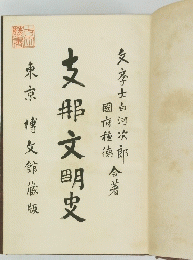 文学士白河次郎
国府種徳 合著
支那文明史
東京 博文館蔵版